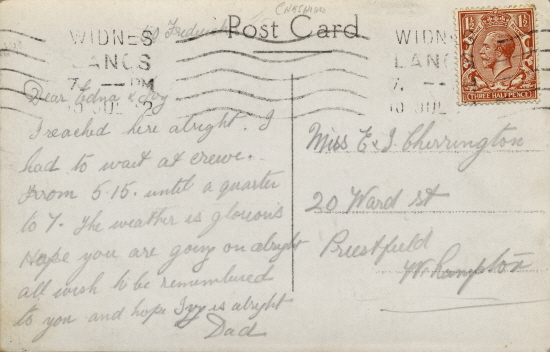 Chatham
Post Card
WIDNES
LANCS
7. PM
10 JUL 2
WIDN
LANC
7.
10 JUL
1½ 1½
THREE HALF PENCE
Dear Edna & Ivy
I reached here alright. I
had to wait at crewe.
From 5-15. until a quarter
to 7. The weather is glorious
Hope you are going on alright
all wish to be remembered
to you and hope Ivy is alright
Dad
Miss E & I Cherrington
20 Ward st
Priestfield
W. hampton